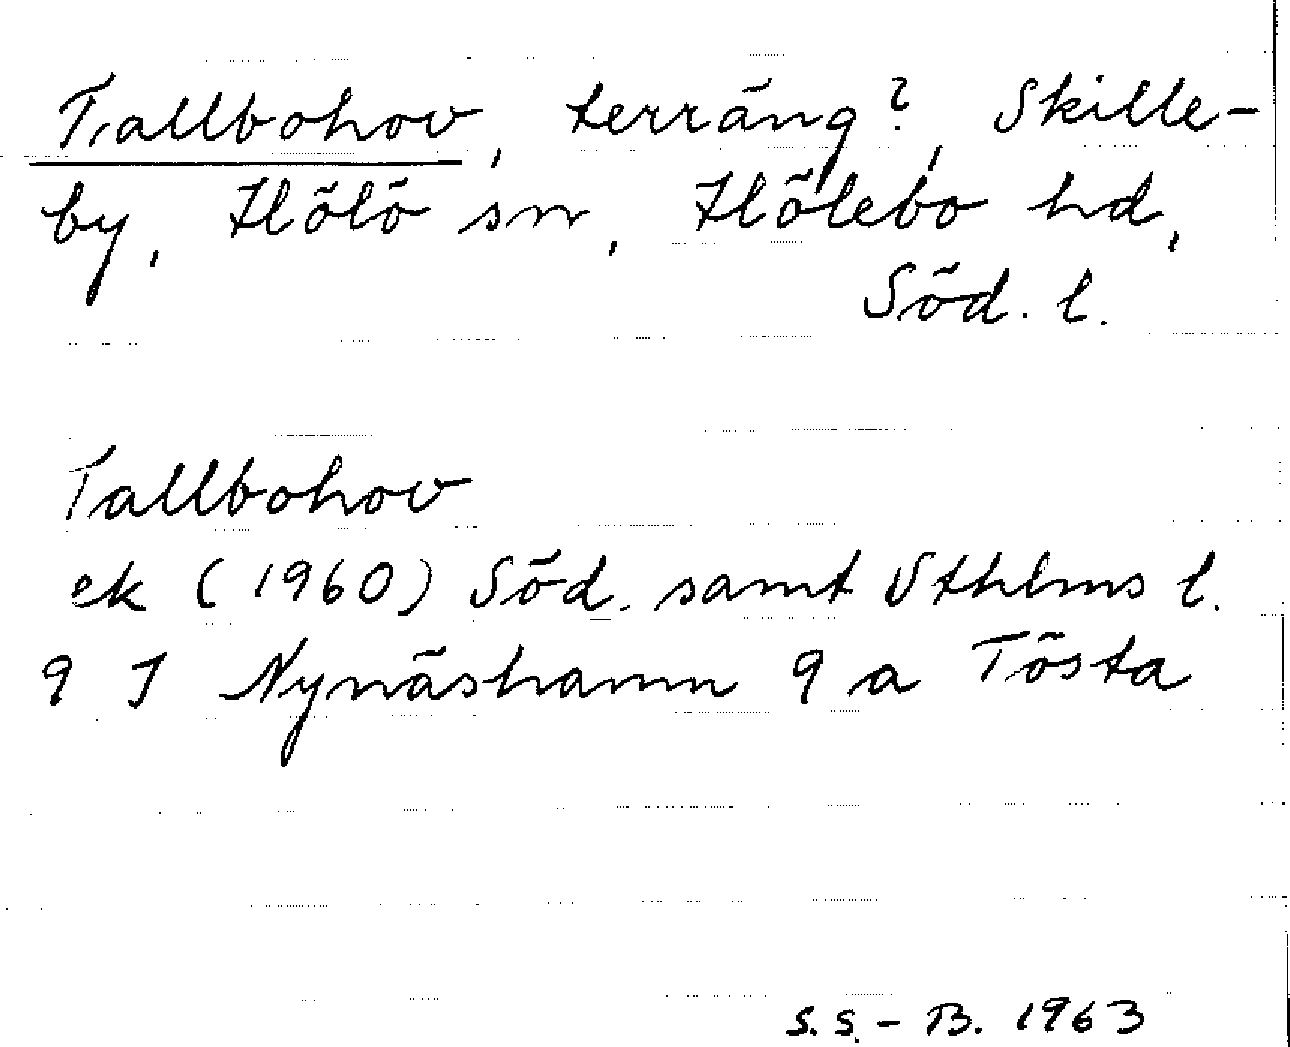 Tallbohov, terräng?, Skille-
by, Hölö sn, Hölebo hd,
Söd. l.
Tallbohov
ek (1960) Söd. samt Sthlms l.
9 I Nynäshamn 9 a Tösta
S.S.-B. 1963